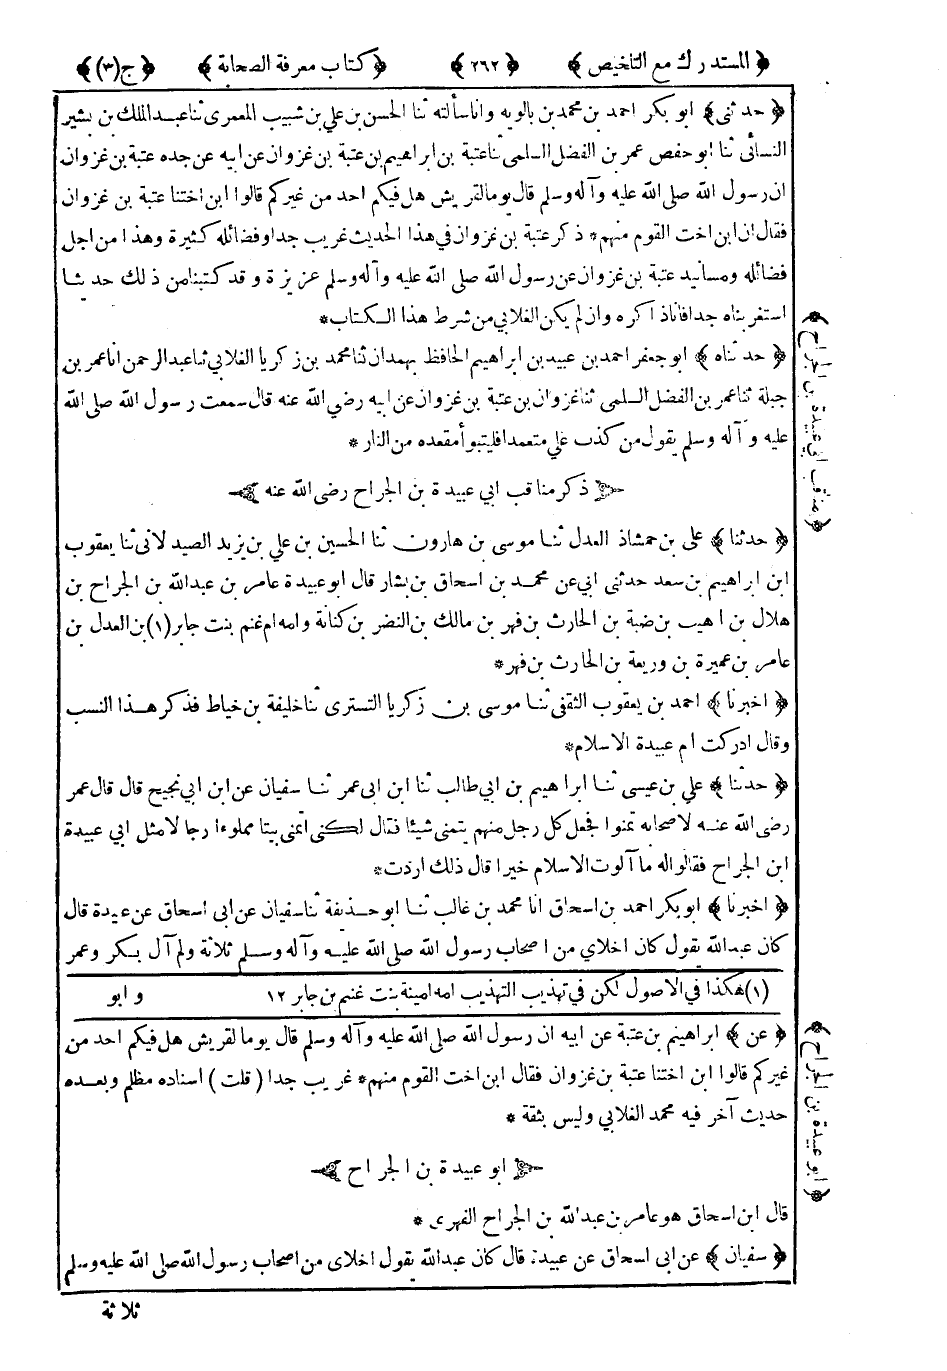 ﴿ المستدرك مع التلخيص ﴾ ﴿ ٢٦٢ ﴾ ﴿ كتاب معرفة الصحابة ﴾ ﴿ ج(٣) ﴾
﴿ حدثنى ﴾ ابو بكر احمد بن محمد بن بالويه وانا سألته ثنا الحسن بن علي بن شبيب المعمرى ثنا عبد الملك بن بشير
النسائى ثنا ابو حفص عمر بن الفضل السلمى ثنا عتبة بن ابراهيم بن عتبة بن غزوان عن ابيه عن جده عتبة بن غزوان
ان رسول الله صلى الله عليه وآله وسلم قال يوما لقريش هل فيكم احد من غيركم قالوا ابن اختنا عتبة بن غزوان
فقال ان ابن اخت القوم منهم * ذكر عتبة بن غزوان في هذا الحديث غريب جدا وفضائله كثيرة وهذا من اجل
فضائله ومسانيد عتبة بن غزوان عن رسول الله صلى الله عليه وآله وسلم عزيزة وقد كتبنا من ذلك حديثا
استغربناه جدا فانا ذاكره وان لم يكن الغلابي من شرط هذا الكتاب *
﴿ حدثناه ﴾ ابو جعفر احمد بن عبيد بن ابراهيم الحافظ بهمدان ثنا محمد بن زكريا الغلابي ثنا عبد الرحمن انا عمر بن
جبلة ثنا عمر بن الفضل السلمى ثنا غزوان بن عتبة بن غزوان عن ابيه رضي الله عنه قال سمعت رسول الله صلى الله
عليه وآله وسلم يقول من كذب علي متعمدا فليتبوأ مقعده من النار *
ذكر مناقب ابي عبيدة بن الجراح رضى الله عنه
﴿ حدثنا ﴾ على بن حمشاذ العدل ثنا موسى بن هارون ثنا الحسين بن علي بن يزيد الصيدلانى ثنا يعقوب
ابن ابراهيم بن سعد حدثنى ابي عن محمد بن اسحاق بن بشار قال ابو عبيدة عامر بن عبد الله بن الجراح بن
هلال بن اهيب بن ضبة بن الحارث بن فهر بن مالك بن النضر بن كنانة وامه ام غنم بنت جابر (١) بن العدل بن
عامر بن عميرة بن وريعة بن الحارث بن فهر *
﴿ اخبرنا ﴾ احمد بن يعقوب الثقفى ثنا موسى بن زكريا التسترى ثنا خليفة بن خياط فذكر هذا النسب
وقال ادركت ام عبيدة الاسلام *
﴿ حدثنا ﴾ علي بن عيسى ثنا ابراهيم بن ابي طالب ثنا ابن ابى عمر ثنا سفيان عن ابن ابي نجيح قال قال عمر
رضى الله عنه لاصحابه تمنوا فجعل كل رجل منهم يتمنى شيئا فقال لكني اتمنى بيتا مملوءا رجالا مثل ابي عبيدة
ابن الجراح فقالوا له ما آلوت الاسلام خيرا قال ذلك اردت *
﴿ اخبرنا ﴾ ابو بكر احمد بن اسحاق انا محمد بن غالب ثنا ابو حذيفة ثنا سفيان عن ابى اسحاق عن عبيدة قال
كان عبد الله يقول كان اخلاي من اصحاب رسول الله صلى الله عليه وآله وسلم ثلاثة ولم آل بكر وعمر
(١) هكذا في الاصول لكن في تهذيب التهذيب امه اميمة بنت غنم بن جابر ١٢ وابو
﴿ عن ﴾ ابراهيم بن عتبة عن ابيه ان رسول الله صلى الله عليه وآله وسلم قال يوما لقريش هل فيكم احد من
غيركم قالوا ابن اختنا عتبة بن غزوان فقال ابن اخت القوم منهم * غريب جدا (قلت) اسناده مظلم وبعده
حديث آخر فيه محمد الغلابي وليس بثقة *
ابو عبيدة بن الجراح
قال ابن اسحاق هو عامر بن عبد الله بن الجراح الفهرى *
﴿ سفيان ﴾ عن ابى اسحاق عن عبيدة قال كان عبد الله يقول اخلاى من اصحاب رسول الله صلى الله عليه وسلم
ثلاثة
﴿ مناقب ابي عبيدة بن الجراح ﴾
﴿ ابو عبيدة بن الجراح ﴾